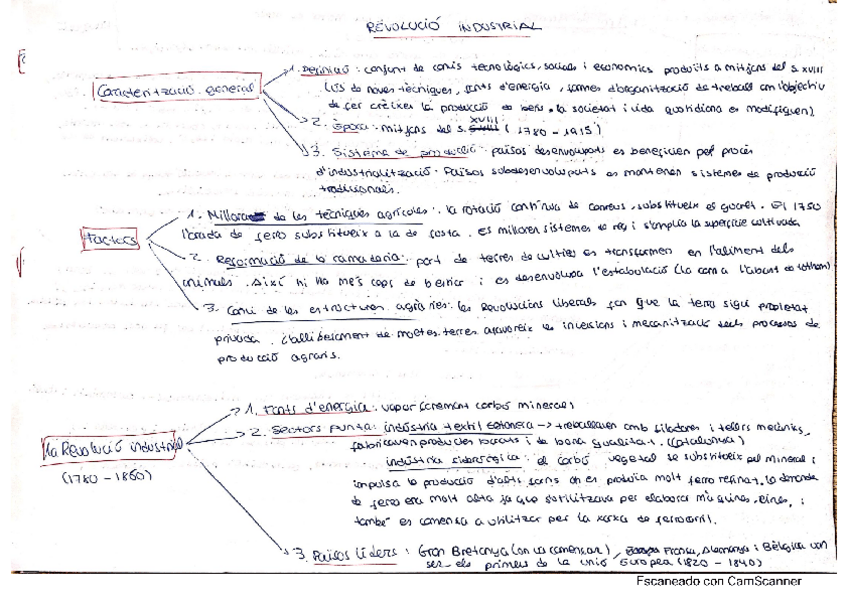 REVOLUCIÓ INDUSTRIAL
Caracterització general
1. Definició: conjunt de canvis tecnològics, socials i economics produïts a mitjans del s. XVIII
(ús de noves tècniques, fonts d'energia, formes d'organització de treball amb l'objectiu
de fer créixer la producció de bens. la societat i vida quotidiana es modifiquen)
2. Època: mitjans del s. XVIII (1780 - 1915)
3. Sistema de producció: països desenvolupats es beneficien pel procés
d'industrialització. Països subdesenvolupats es mantenen sistemes de producció
tradicionals.
Factors
1. Millora de les tècniques agrícoles: la rotació contínua de conreus, substitueix el guaret. El 1750
l'arada de ferro substitueix a la de fusta. es milloren sistemes de reg i s'amplia la superfície cultivada
2. de la ramaderia: part de terres de cultiu es transformen en l'aliment dels
animals. Així hi ha més caps de bestiar i es desenvolupa l'estabulació (la carn a l'abast de tothom)
3. Canvi de les estructures agràries: les Revolucions liberals fan que la terra sigui propietat
privada. L'alliberament de moltes terres afavoreix les inversions i mecanització dels processos de
producció agraris.
La Revolució industrial
(1780 - 1860)
1. Fonts d'energia: vapor (cremant carbó mineral)
2. Sectors punta: indústria textil cotonera -> treballaven amb filadores i telers mecànics,
fabricaven productes barats i de bona qualitat. (Catalunya)
indústria siderúrgica: el carbó vegetal se substitueix pel mineral i
impulsa la producció d'alts forns on es produïa molt ferro refinat. la demanda
de ferro era molt alta ja que s'utilitzava per elaborar màquines, eines, i
també es comença a utilitzar per la xarxa de ferrocarril.
3. Països líders: Gran Bretanya (on va començar), França, Alemanya i Bèlgica van
ser els primers de la unió Europea (1820 - 1840)
Escaneado con CamScanner